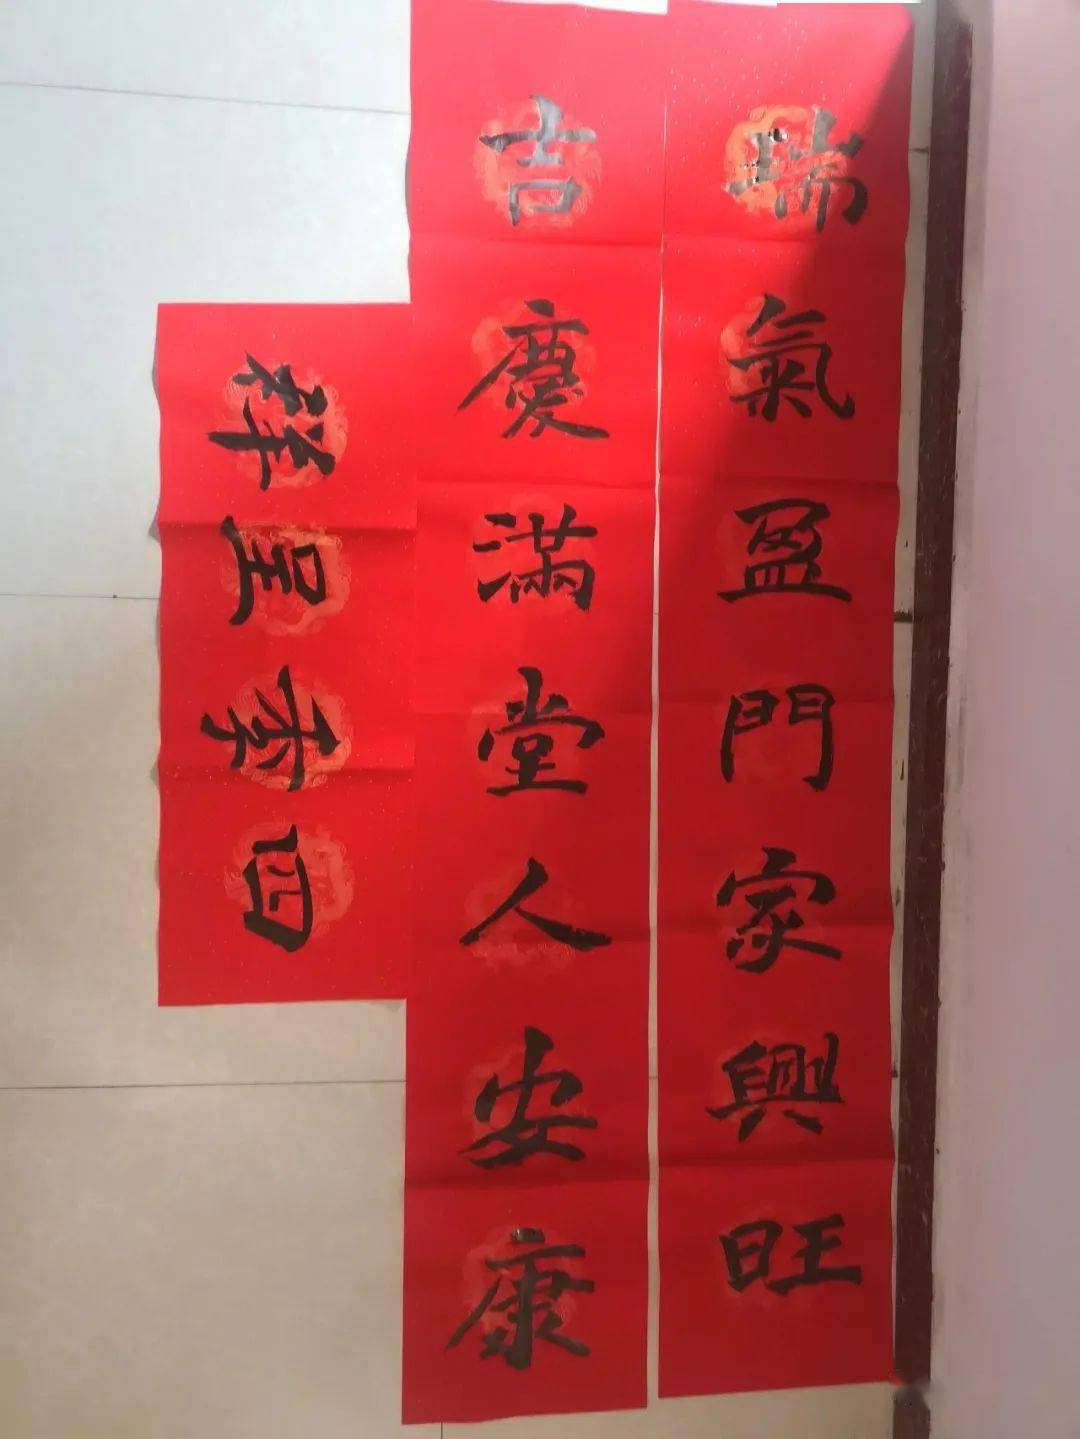 瑞氣盈門家興旺
吉慶滿堂人安康
四季呈祥